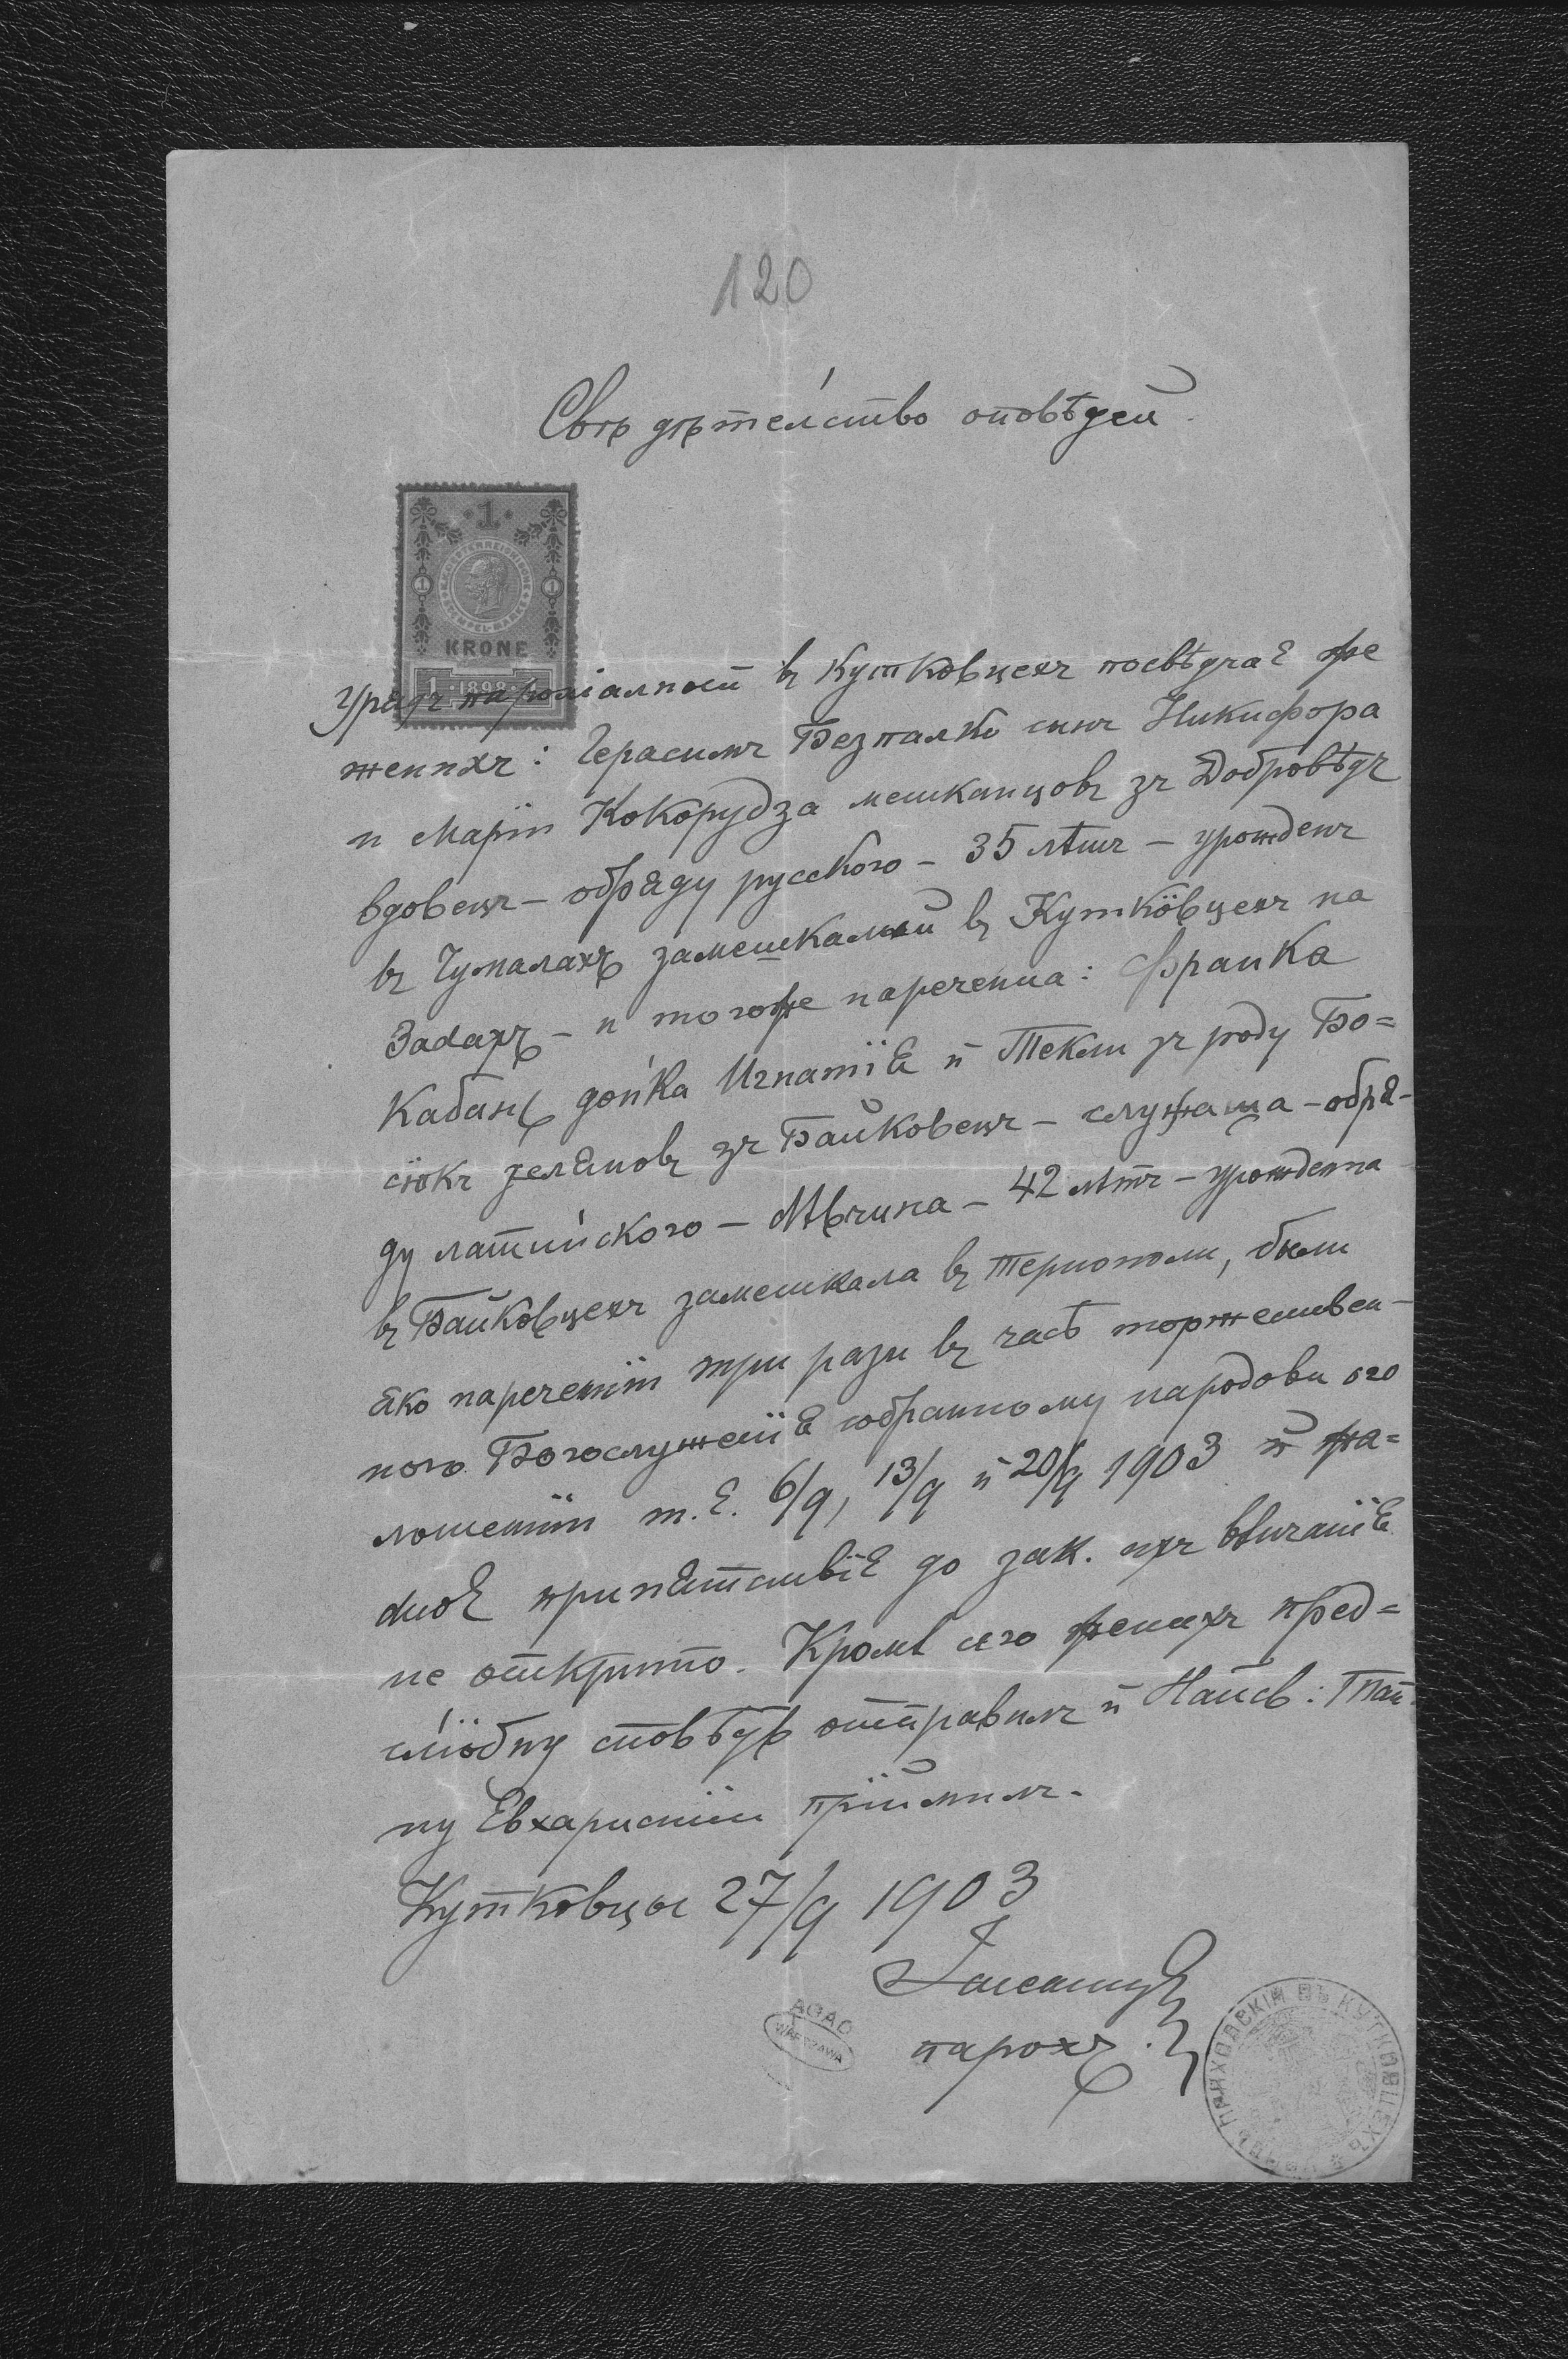 120
Свѣдѣтельство оповѣдей.
1
KRONE
1 1898 1
Урядъ пароxіалный въ Кутковцехъ посвѣдчає же
женихъ: Герасимъ Безпалко сынъ Никифора
и Маріи Кокорудза мешканцовъ зъ Добровѣдъ
вдовецъ – обряду русского – 35 лѣтъ – урожденъ
въ Чумалахъ замешкалый въ Кутковцехъ на
Задахъ – и тогоже наречена: Франка
Кабанъ донька Игнатія и Текли зъ роду Бо=
сюкъ селяновъ зъ Байковецъ – служаща – обря-
ду латиньского – дѣвчина – 42 лѣтъ – урожденна
въ Байковцехъ замешкала въ Тернополи, были
яко наречении три разы въ часѣ торжествен-
ного Богослуженія собранному народови ого
лошении т.е. 6/9, 13/9 и 20/9 1903 и жа=
дноє припятствіє до зак. ихъ вѣнчанія
не открыто. Кромѣ сего женихъ пред=
слюбну сповѣдь отправилъ и Найсв: Тай
ну Евхаристіи пріймилъ.
Кутковцы 27/9 1903
парохъ.
AGAD
WARSZAWA
УРЯДЪ ПРИХОДСКІЙ ВЪ КУТКОВЦЕХЪ